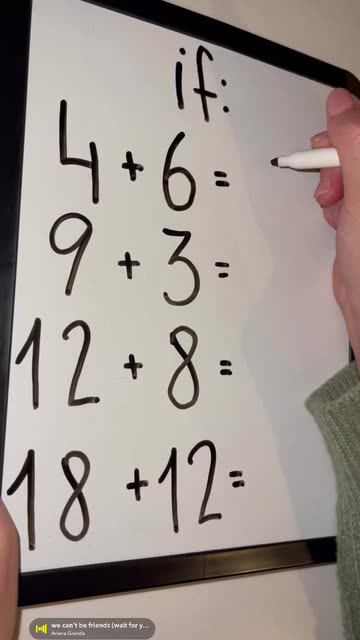 if:
4 + 6 =
9 + 3 =
12 + 8 =
18 + 12 =
we can't be friends (wait for y...
Ariana Grande